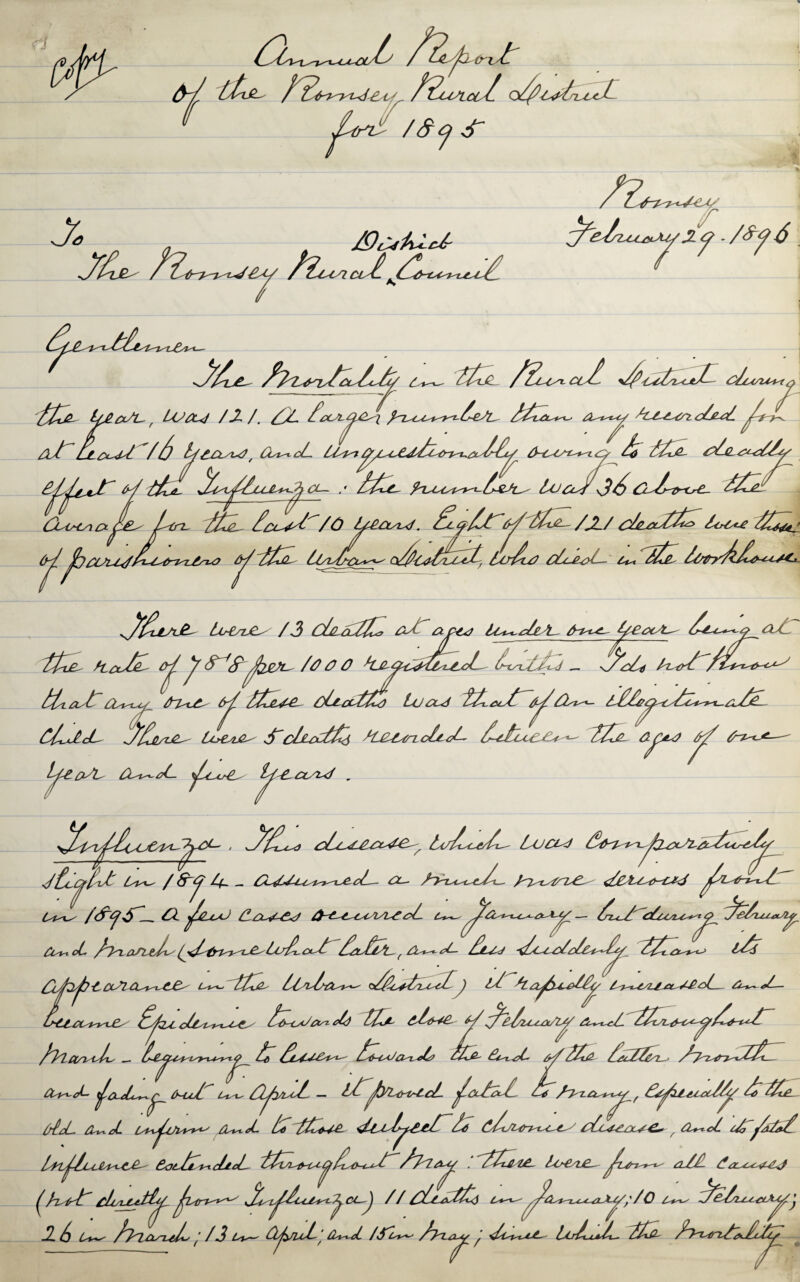 Copy
Annual Report
Of the Romsey Rural District
for 1895
Romsey
To
February 29 . 1896
District
The Romsey Rural Council
Gentlemen
The Mortality in the Rural District during
the year, was 121. A larger number than any recorded for
at least 16 years, and unquestionably owing to the deadly
effect of the Influenza : the number was 36 above the
average for the last 10 years. Eight of the 121 deaths were those
of parishioners of the Urban District, who died in the workhouse.
There were 13 deaths at ages under one year being at
the rate of 78.8 per 1000 registered births _ I do not know
that any one of these deaths was that of an illegitimate
child There were 5 deaths recorded between the ages of one
year and five years .
Influenza . This disease, which was comparatively
slight in 1894 _ assumed a much more serious front
in 1895 _ A few cases occurred in January _ but during February
and March (somewhat later, and less suddenly than its
appearance in the Urban District) it rapidly increased and
became Epidemic towards the close of February and throughout
March _ beginning to lessen towards the end of the latter month
and fading out in April _ it proved fatal to many, especially to the
old and infirm and to those subject to chronic disease, and its fatal
influence extended throughout May : There were from all causes
(not directly from Influenza) 11 deaths in January; 10 in February;
26 in March ; 13 in April ; and 15 in May ; since which the Mortality